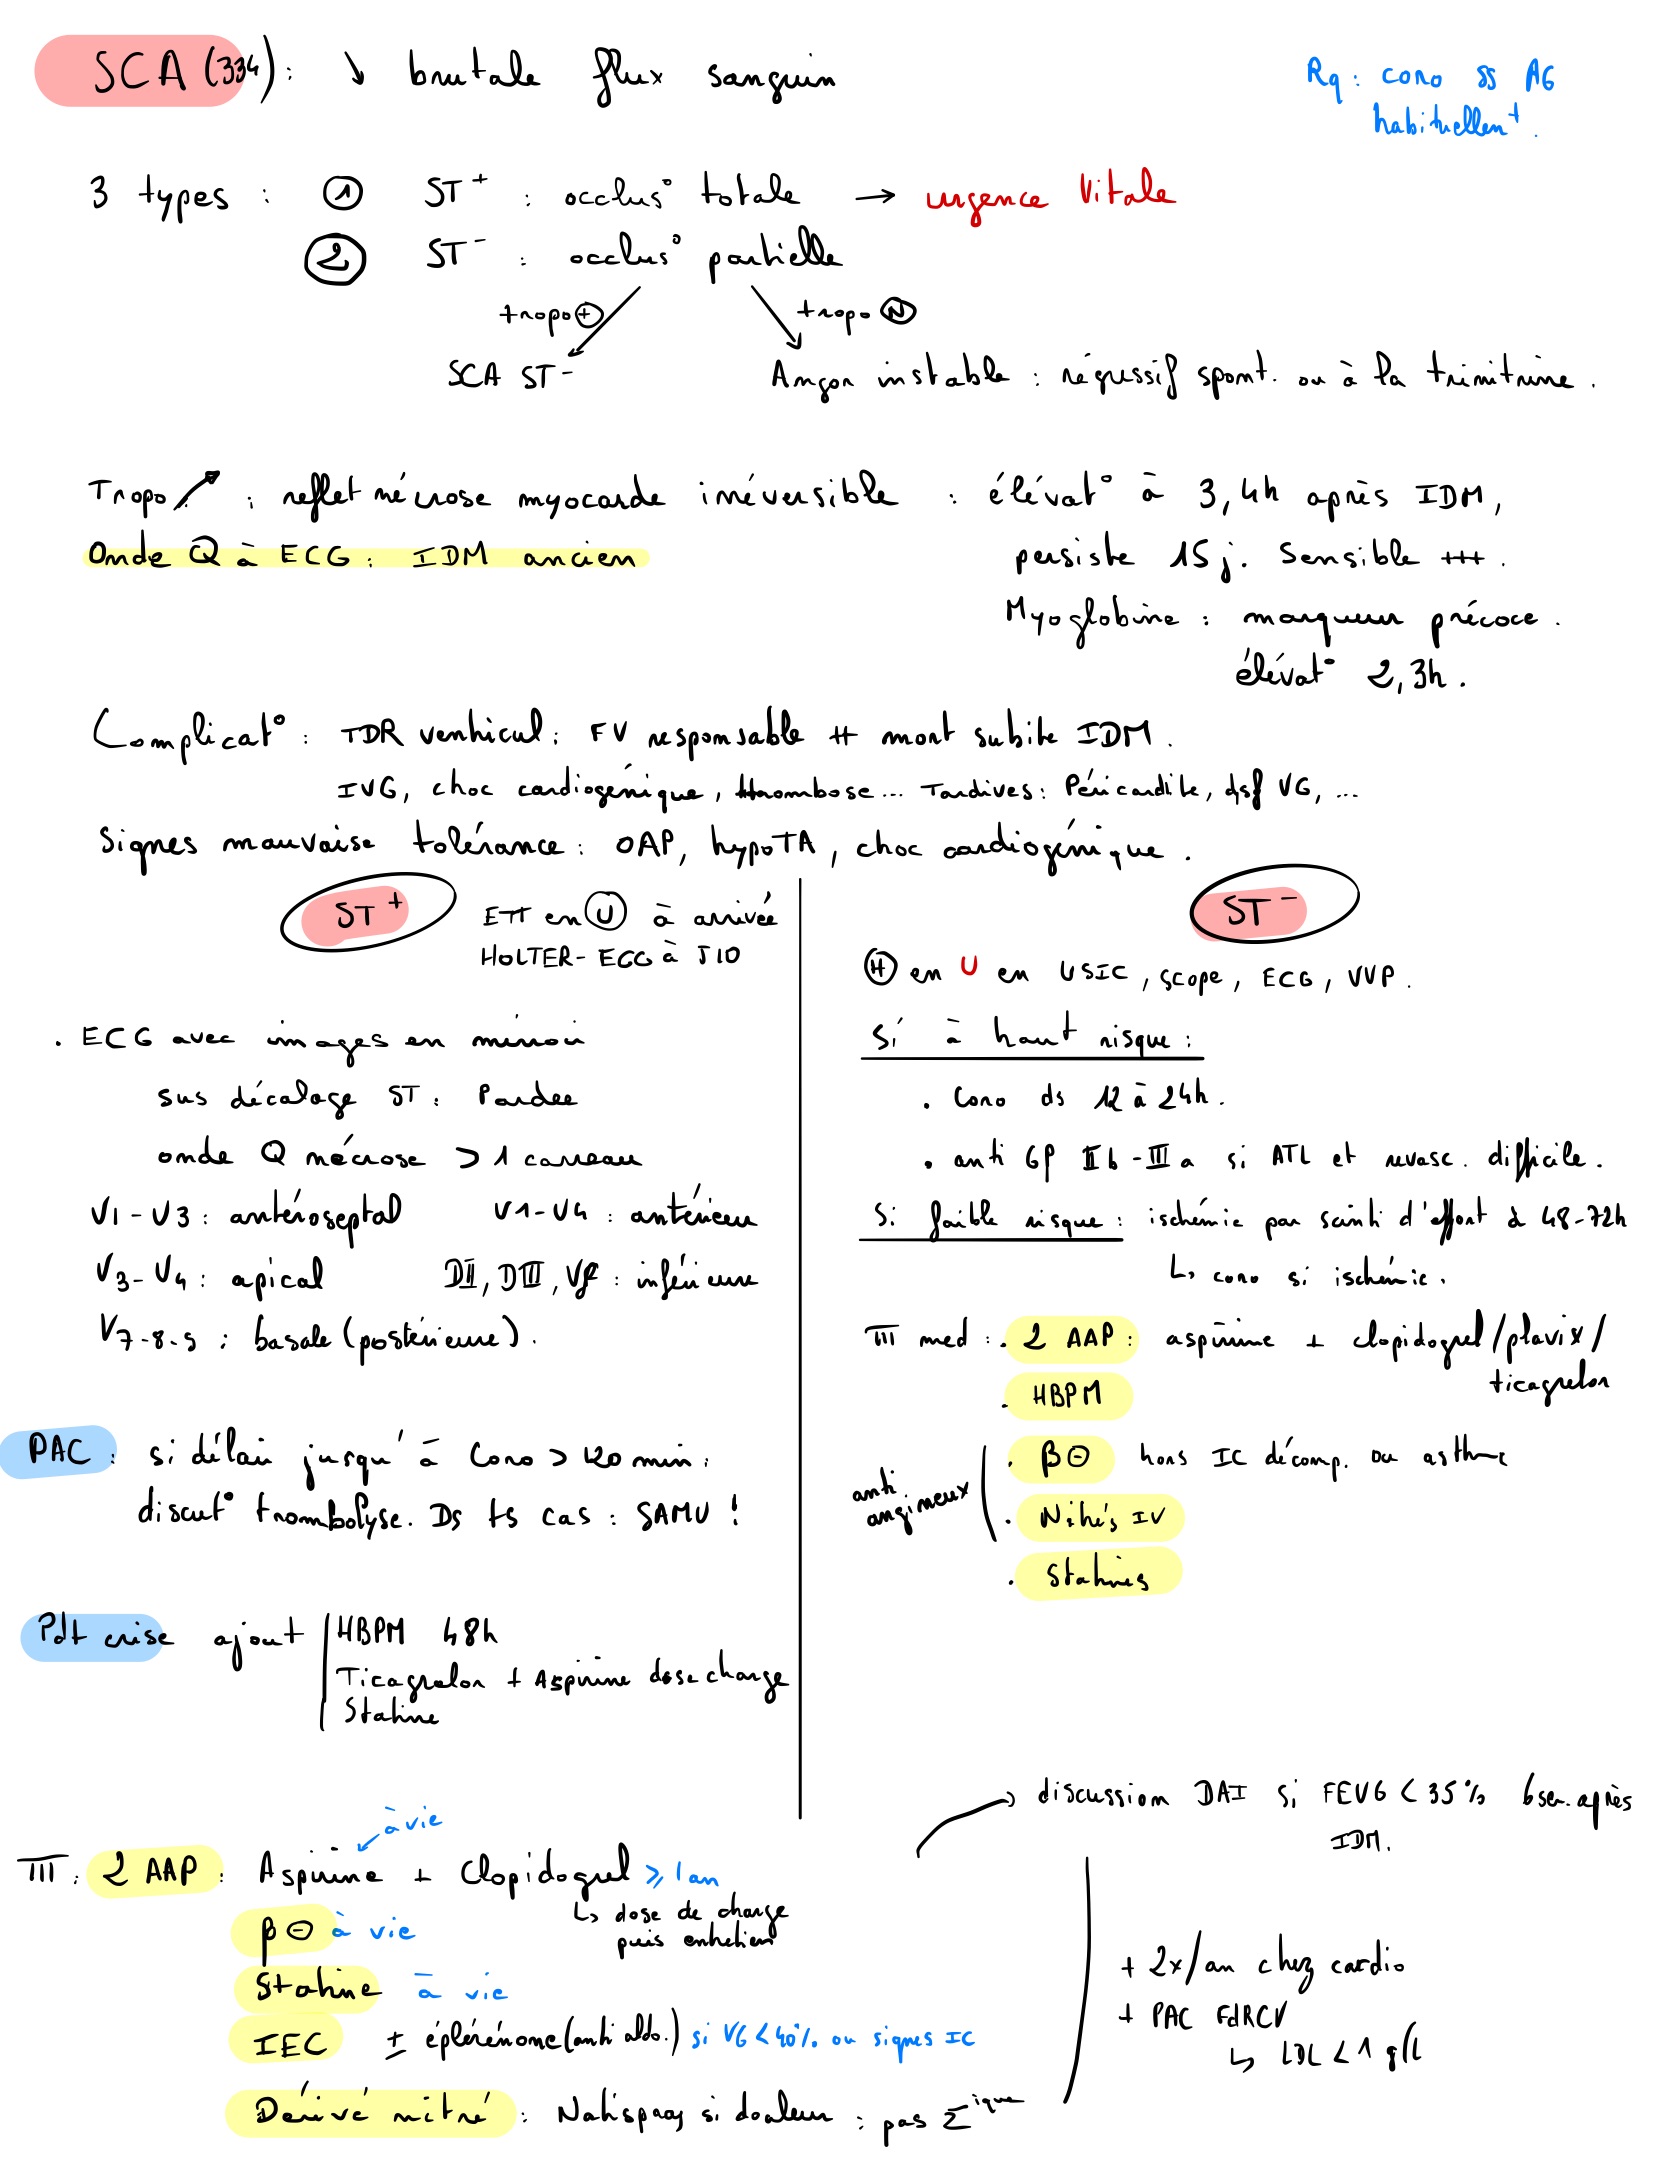 SCA (334) : ↘ brutale flux sanguin
Rq : coro ss AG
habituellent.
3 types : ① ST+ : occlus° totale → urgence Vitale
② ST- : occlus° partielle
tropo ⊕
tropo Ⓝ
SCA ST-
Angor instable : régressif spont. ou à la trinitrine.
Tropo ↗ : reflet nécrose myocarde irréversible : élévat° à 3,4h après IDM,
Onde Q à ECG : IDM ancien
persiste 15 j. Sensible +++.
Myoglobine : marqueur précoce.
élévat° 2,3h.
Complicat° : TDR ventricul : FV responsable # mort subite IDM.
IVG, choc cardiogénique, thrombose... Tardives : Péricardite, dsf VG, ...
Signes mauvaise tolérance : OAP, hypoTA, choc cardiogénique.
ST+
ETT en Ⓤ à arrivée
HOLTER-ECG à J10
. ECG avec images en miroir
sus décalage ST : Pardee
onde Q nécrose > 1 carreau
V1-V3 : antéroseptal V1-V4 : antérieur
V3-V4 : apical DII, DIII, VF : inférieure
V7-8-9 : basale (postérieure).
PAC : si délai jusqu'à Coro > 120 min :
discut° trombolyse. Ds ts cas : SAMU !
Pdt crise ajout HBPM 48h
Ticagrelor + Aspirine dose charge
Statine
ST-
Ⓗ en U en USIC, scope, ECG, VVP.
Si à haut risque :
. Coro ds 12 à 24h.
. anti GP IIb-IIIa si ATL et revasc. difficile.
Si faible risque : ischémie par scinti d'effort à 48-72h
↳ coro si ischémie.
TTT med : . 2 AAP : aspirine + clopidogrel/plavix/
ticagrelor
. HBPM
anti
angineux
. β⊖ hors IC décomp. ou asthme
. Nitrés IV
. Statines
→ discussion DAI si FEVG < 35% 6sem. après
IDM.
à vie
TTT : 2 AAP : Aspirine + Clopidogrel ⩾ 1an
↳ dose de charge
puis entretien
β⊖ à vie
Statine à vie
IEC ± éplérénone (anti aldo.) si VG < 40% ou signes IC
Dérivé nitré : Natispray si douleur : pas Σique
+ 2x/an chez cardio
+ PAC FdRCV
↳ LDL < 1 g/L